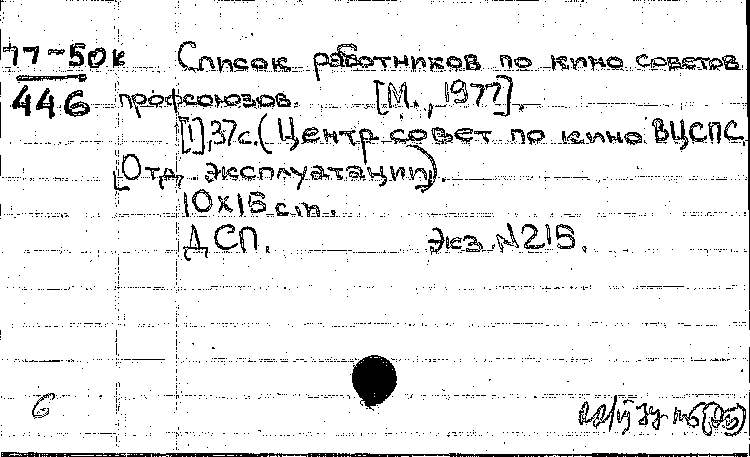 77-50к Список работников по кино советов
446 профсоюзов. [М., 1977].
[1], 37с. (Центр совет по кино ВЦСПС.
Отд. эксплуатации).
10х15 cm.
ДСП. Экз. N215.
6